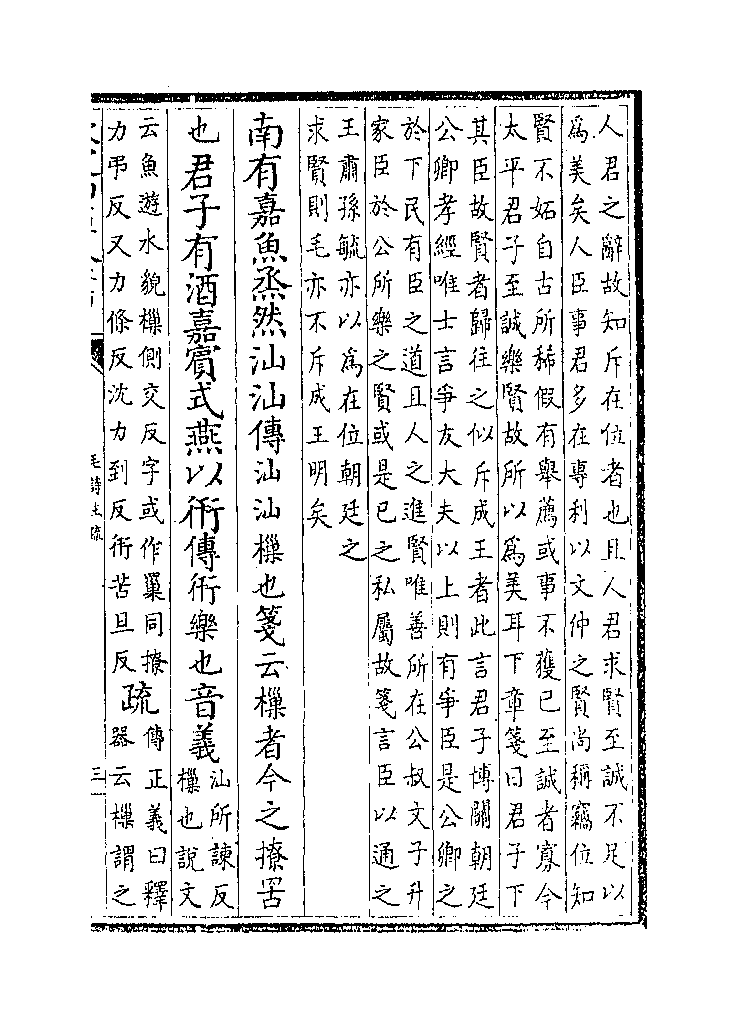 人君之辭故知斥在位者也且人君求賢至誠不足以
爲美矣人臣事君多在專利以文仲之賢尚稱竊位知
賢不妬自古所稀假有舉薦或事不獲已至誠者寡今
太平君子至誠樂賢故所以爲美耳下章箋曰君子下
其臣故賢者歸往之似斥成王者此言君子博關朝廷
公卿孝經唯士言爭友大夫以上則有爭臣是公卿之
於下民有臣之道且人之進賢唯善所在公叔文子升
家臣於公所樂之賢或是已之私屬故箋言臣以通之
王肅孫毓亦以爲在位朝廷之
求賢則毛亦不斥成王明矣
南有嘉魚烝然汕汕傳汕汕樔也箋云樔者今之撩罟
也君子有酒嘉賓式燕以衎傳衎樂也音義
汕所諫反
樔也說文
云魚遊水貌樔側交反字或作罺同撩
力弔反又力條反沈力到反衎苦旦反
疏
傳正義曰釋
器云樔謂之
毛詩注疏
三